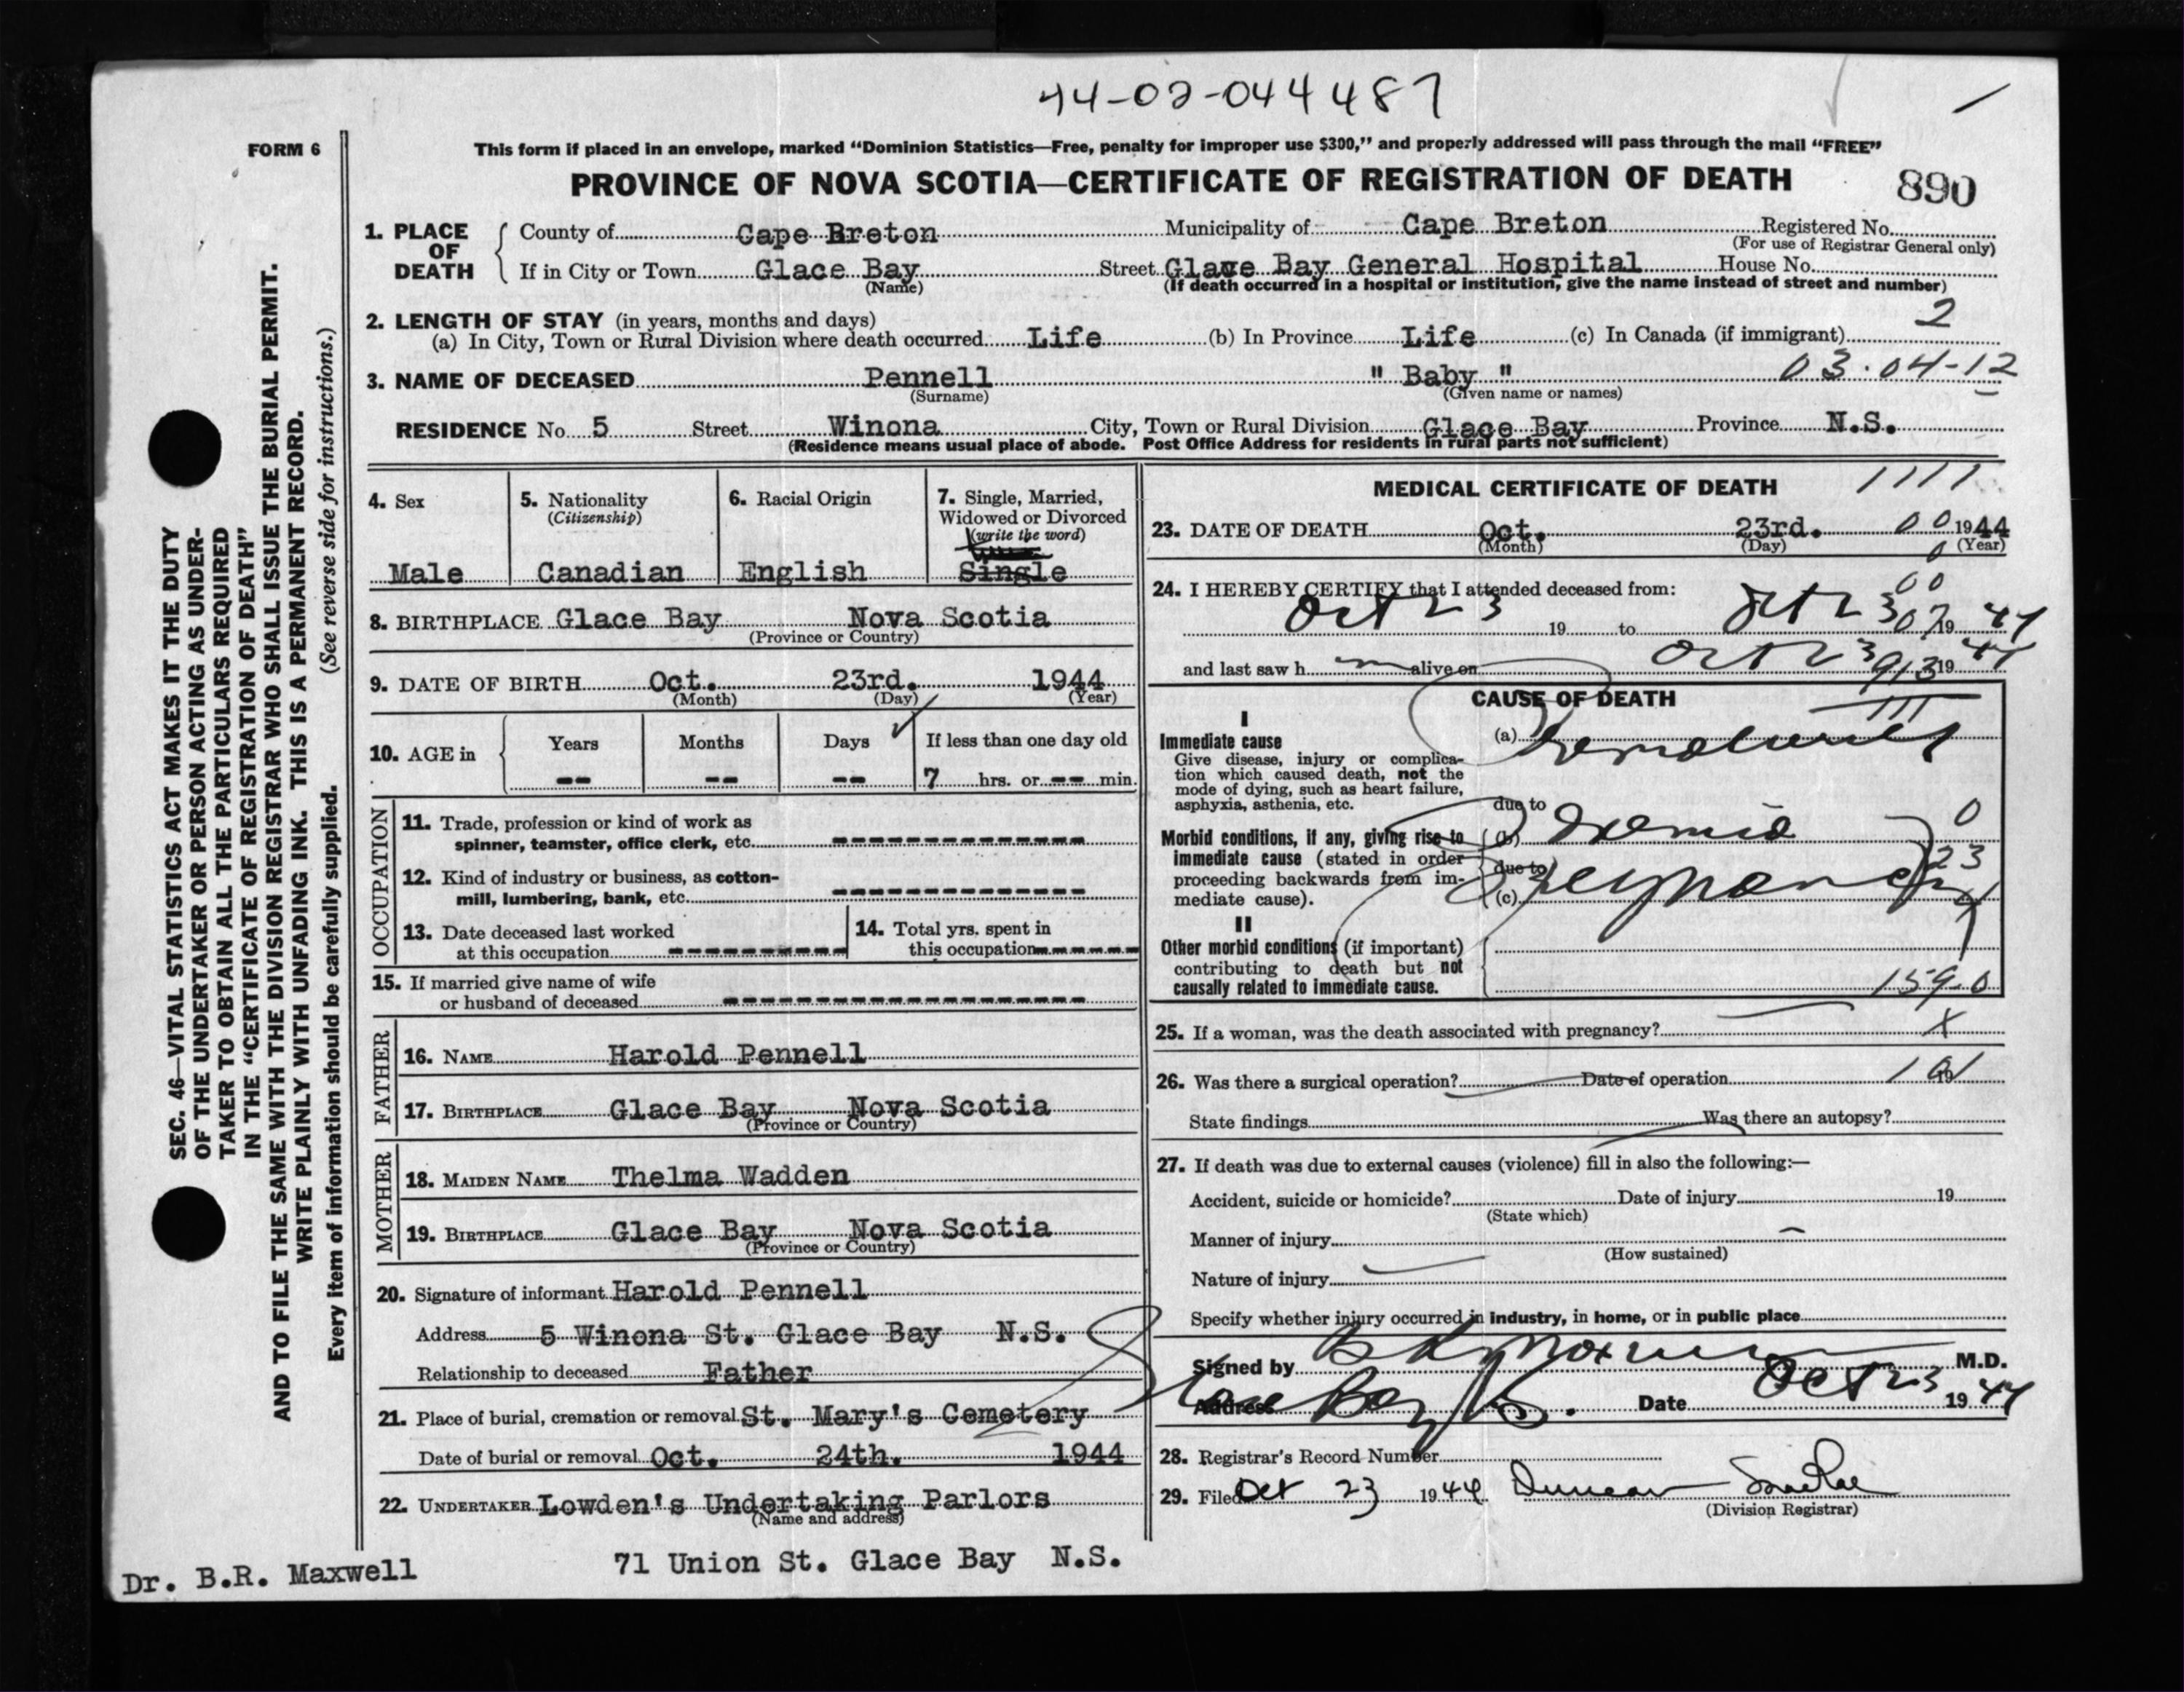 44-02-044487
FORM 6
This form if placed in an envelope, marked “Dominion Statistics—Free, penalty for improper use $300,” and properly addressed will pass through the mail “FREE”
PROVINCE OF NOVA SCOTIA—CERTIFICATE OF REGISTRATION OF DEATH 890
1. PLACE OF DEATH
County of Cape Breton Municipality of Cape Breton Registered No.
(For use of Registrar General only)
If in City or Town Glace Bay Street Glave Bay General Hospital House No.
(Name) (If death occurred in a hospital or institution, give the name instead of street and number)
2. LENGTH OF STAY (in years, months and days) 2
(a) In City, Town or Rural Division where death occurred Life (b) In Province Life (c) In Canada (if immigrant)
3. NAME OF DECEASED Pennell " Baby " 03.04-12
(Surname) (Given name or names)
RESIDENCE No. 5 Street Winona City, Town or Rural Division Glace Bay Province N.S.
(Residence means usual place of abode. Post Office Address for residents in rural parts not sufficient)
4. Sex
Male
5. Nationality
(Citizenship)
Canadian
6. Racial Origin
English
7. Single, Married,
Widowed or Divorced
(write the word)
Single
8. BIRTHPLACE Glace Bay Nova Scotia
(Province or Country)
9. DATE OF BIRTH Oct. 23rd. 1944
(Month) (Day) (Year)
10. AGE in
Years Months Days If less than one day old
-- -- -- 7 hrs. or -- min.
OCCUPATION
11. Trade, profession or kind of work as
spinner, teamster, office clerk, etc.
12. Kind of industry or business, as cotton-
mill, lumbering, bank, etc.
13. Date deceased last worked
at this occupation
14. Total yrs. spent in
this occupation
15. If married give name of wife
or husband of deceased
FATHER
16. NAME Harold Pennell
17. BIRTHPLACE Glace Bay Nova Scotia
(Province or Country)
MOTHER
18. MAIDEN NAME Thelma Wadden
19. BIRTHPLACE Glace Bay Nova Scotia
(Province or Country)
20. Signature of informant Harold Pennell
Address 5 Winona St. Glace Bay N.S.
Relationship to deceased Father
21. Place of burial, cremation or removal St. Mary's Cemetery
Date of burial or removal Oct. 24th. 1944
22. UNDERTAKER Lowden's Undertaking Parlors
(Name and address)
71 Union St. Glace Bay N.S.
Dr. B.R. Maxwell
MEDICAL CERTIFICATE OF DEATH 1111
23. DATE OF DEATH Oct. 23rd. 00 1944
(Month) (Day) (Year)
24. I HEREBY CERTIFY that I attended deceased from:
Oct 23 19 to Oct 23 19 44
and last saw h m alive on Oct 23 19 44
CAUSE OF DEATH
I
Immediate cause
Give disease, injury or complica-
tion which caused death, not the
mode of dying, such as heart failure,
asphyxia, asthenia, etc.
(a)
due to
Morbid conditions, if any, giving rise to
immediate cause (stated in order
proceeding backwards from im-
mediate cause).
(b)
due to
(c) Pregnancy
0
23
II
Other morbid conditions (if important)
contributing to death but not
causally related to immediate cause.
159.0
25. If a woman, was the death associated with pregnancy? X
26. Was there a surgical operation? Date of operation 19
State findings Was there an autopsy?
27. If death was due to external causes (violence) fill in also the following:—
Accident, suicide or homicide? Date of injury 19
(State which)
Manner of injury
(How sustained)
Nature of injury
Specify whether injury occurred in industry, in home, or in public place
Signed by B R Maxwell M.D.
Address Glace Bay N.S. Date Oct 23 19 44
28. Registrar's Record Number
29. Filed Oct 23 1944 Duncan
(Division Registrar)
SEC. 46—VITAL STATISTICS ACT MAKES IT THE DUTY
OF THE UNDERTAKER OR PERSON ACTING AS UNDER-
TAKER TO OBTAIN ALL THE PARTICULARS REQUIRED
IN THE “CERTIFICATE OF REGISTRATION OF DEATH”
AND TO FILE THE SAME WITH THE DIVISION REGISTRAR WHO SHALL ISSUE THE BURIAL PERMIT.
WRITE PLAINLY WITH UNFADING INK. THIS IS A PERMANENT RECORD.
Every item of information should be carefully supplied. (See reverse side for instructions.)